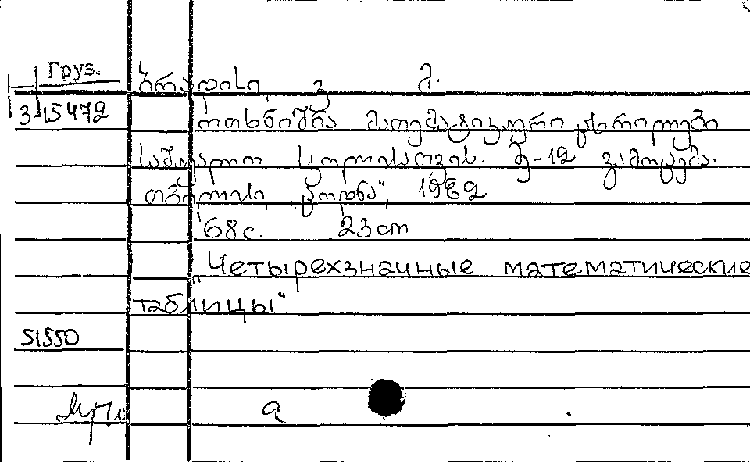 Груз.
ბრადისი, ვ. მ.
3/15472
ოთხნიშნა მათემატიკური ცხრილები
საშუალო სკოლისათვის. მე-12 გამოცემა.
თბილისი, "ცოდნა", 1962
68 с. 23 cm
"Четырехзначные математические
таблицы"
51550
а